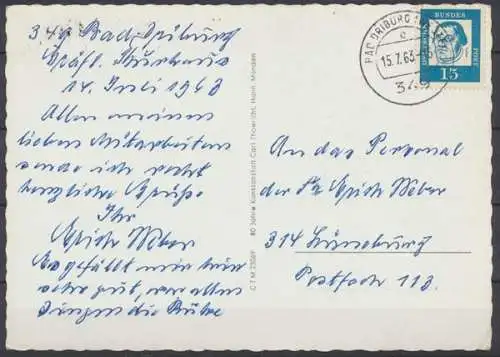 349 Bad Driburg
Gräfl. Kurhaus
14. Juli 1963
Allen meinen
lieben Mitarbeitern
sende ich recht
herzliche Grüße
Ihr
Erich Weber
Es gefällt mir hier
sehr gut, vor allen
Dingen die Ruhe
80 Jahre Kunstanstalt Carl Thoericht, Hann. Münden
BAD DRIBURG
15.7.63
349
DEUTSCHE BUNDESPOST
15
An das Personal
der Fa Erich Weber
314 Lüneburg
Postfach 113.